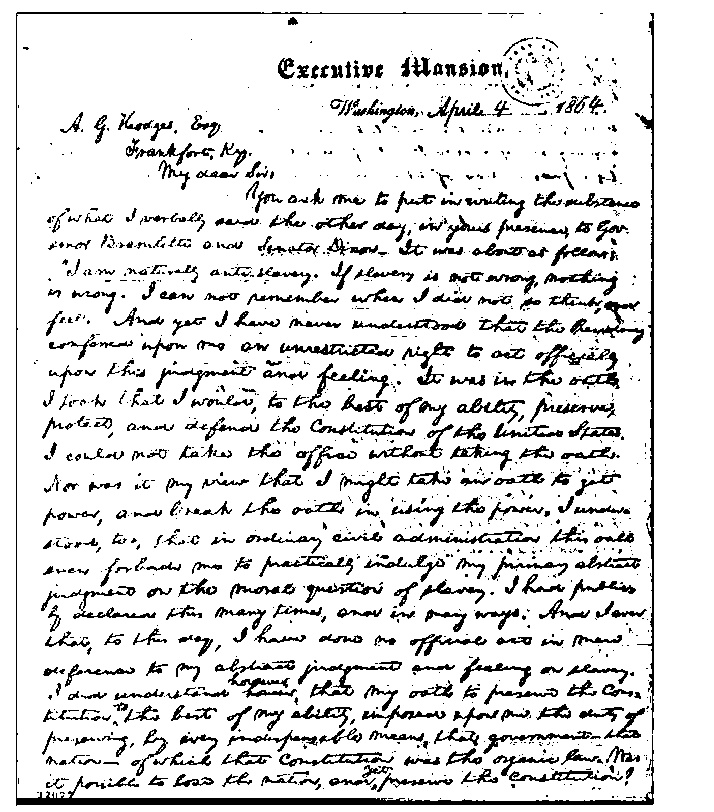 Executive Mansion,
Washington, April 4, 1864.
A. G. Hodges, Esq
Frankfort, Ky.
My dear Sir:
You ask me to put in writing the substance
of what I verbally said the other day, in your presence, to Gov-
ernor Bramlette and Senator Dixon. It was about as follows:
"I am naturally anti-slavery. If slavery is not wrong, nothing
is wrong. I can not remember when I did not so think, and
feel. And yet I have never understood that the Presidency
conferred upon me an unrestricted right to act officially
upon this judgment and feeling. It was in the oath
I took that I would, to the best of my ability, preserve,
protect, and defend the Constitution of the United States.
I could not take the office without taking the oath.
Nor was it my view that I might take an oath to get
power, and break the oath in using the power. I under-
stood, too, that in ordinary civil administration this oath
even forbade me to practically indulge my primary abstract
judgment on the moral question of slavery. I had public-
ly declared this many times, and in many ways. And I aver
that, to this day, I have done no official act in mere
deference to my abstract judgment and feeling on slavery.
I did understand however, that my oath to preserve the Con-
stitution to the best of my ability, imposed upon me the duty of
preserving, by every indispensable means, that government—that
nation—of which that Constitution was the organic law. Was
it possible to lose the nation, and yet preserve the Constitution?